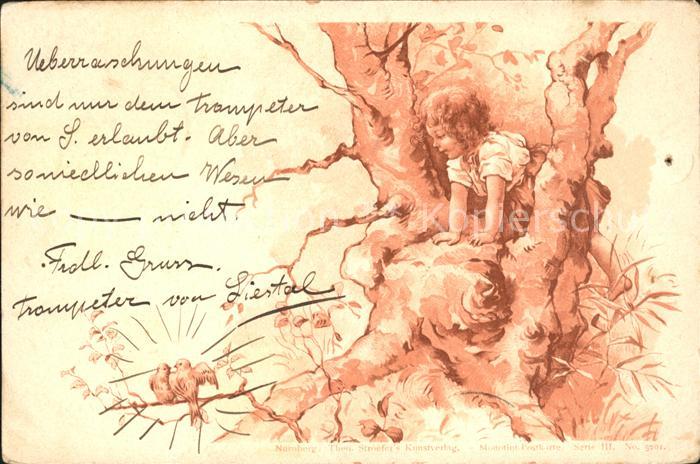 Ueberraschungen
sind nur dem trompeter
von S. erlaubt. Aber
so niedlichen Wesen
wie —— nicht.
Frdl. Gruss.
trompeter von Liestal
Nürnberg. Theo. Stroefer's Kunstverlag. - Monotint-Postkarte. Serie III. No. 5201.